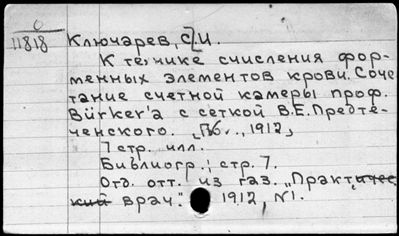 0
11818 Ключарев, С.И.
К технике счисления фор-
менных элементов крови. Соче
тание счетной камеры проф.
Bürker'a с сеткой В.Е. Предте-
ченского. [Пб., 1912]
7 стр. илл.
Библиогр.: стр. 7.
Отд. отт. из газ. „Практичес-
кий врач." 1912, №1.